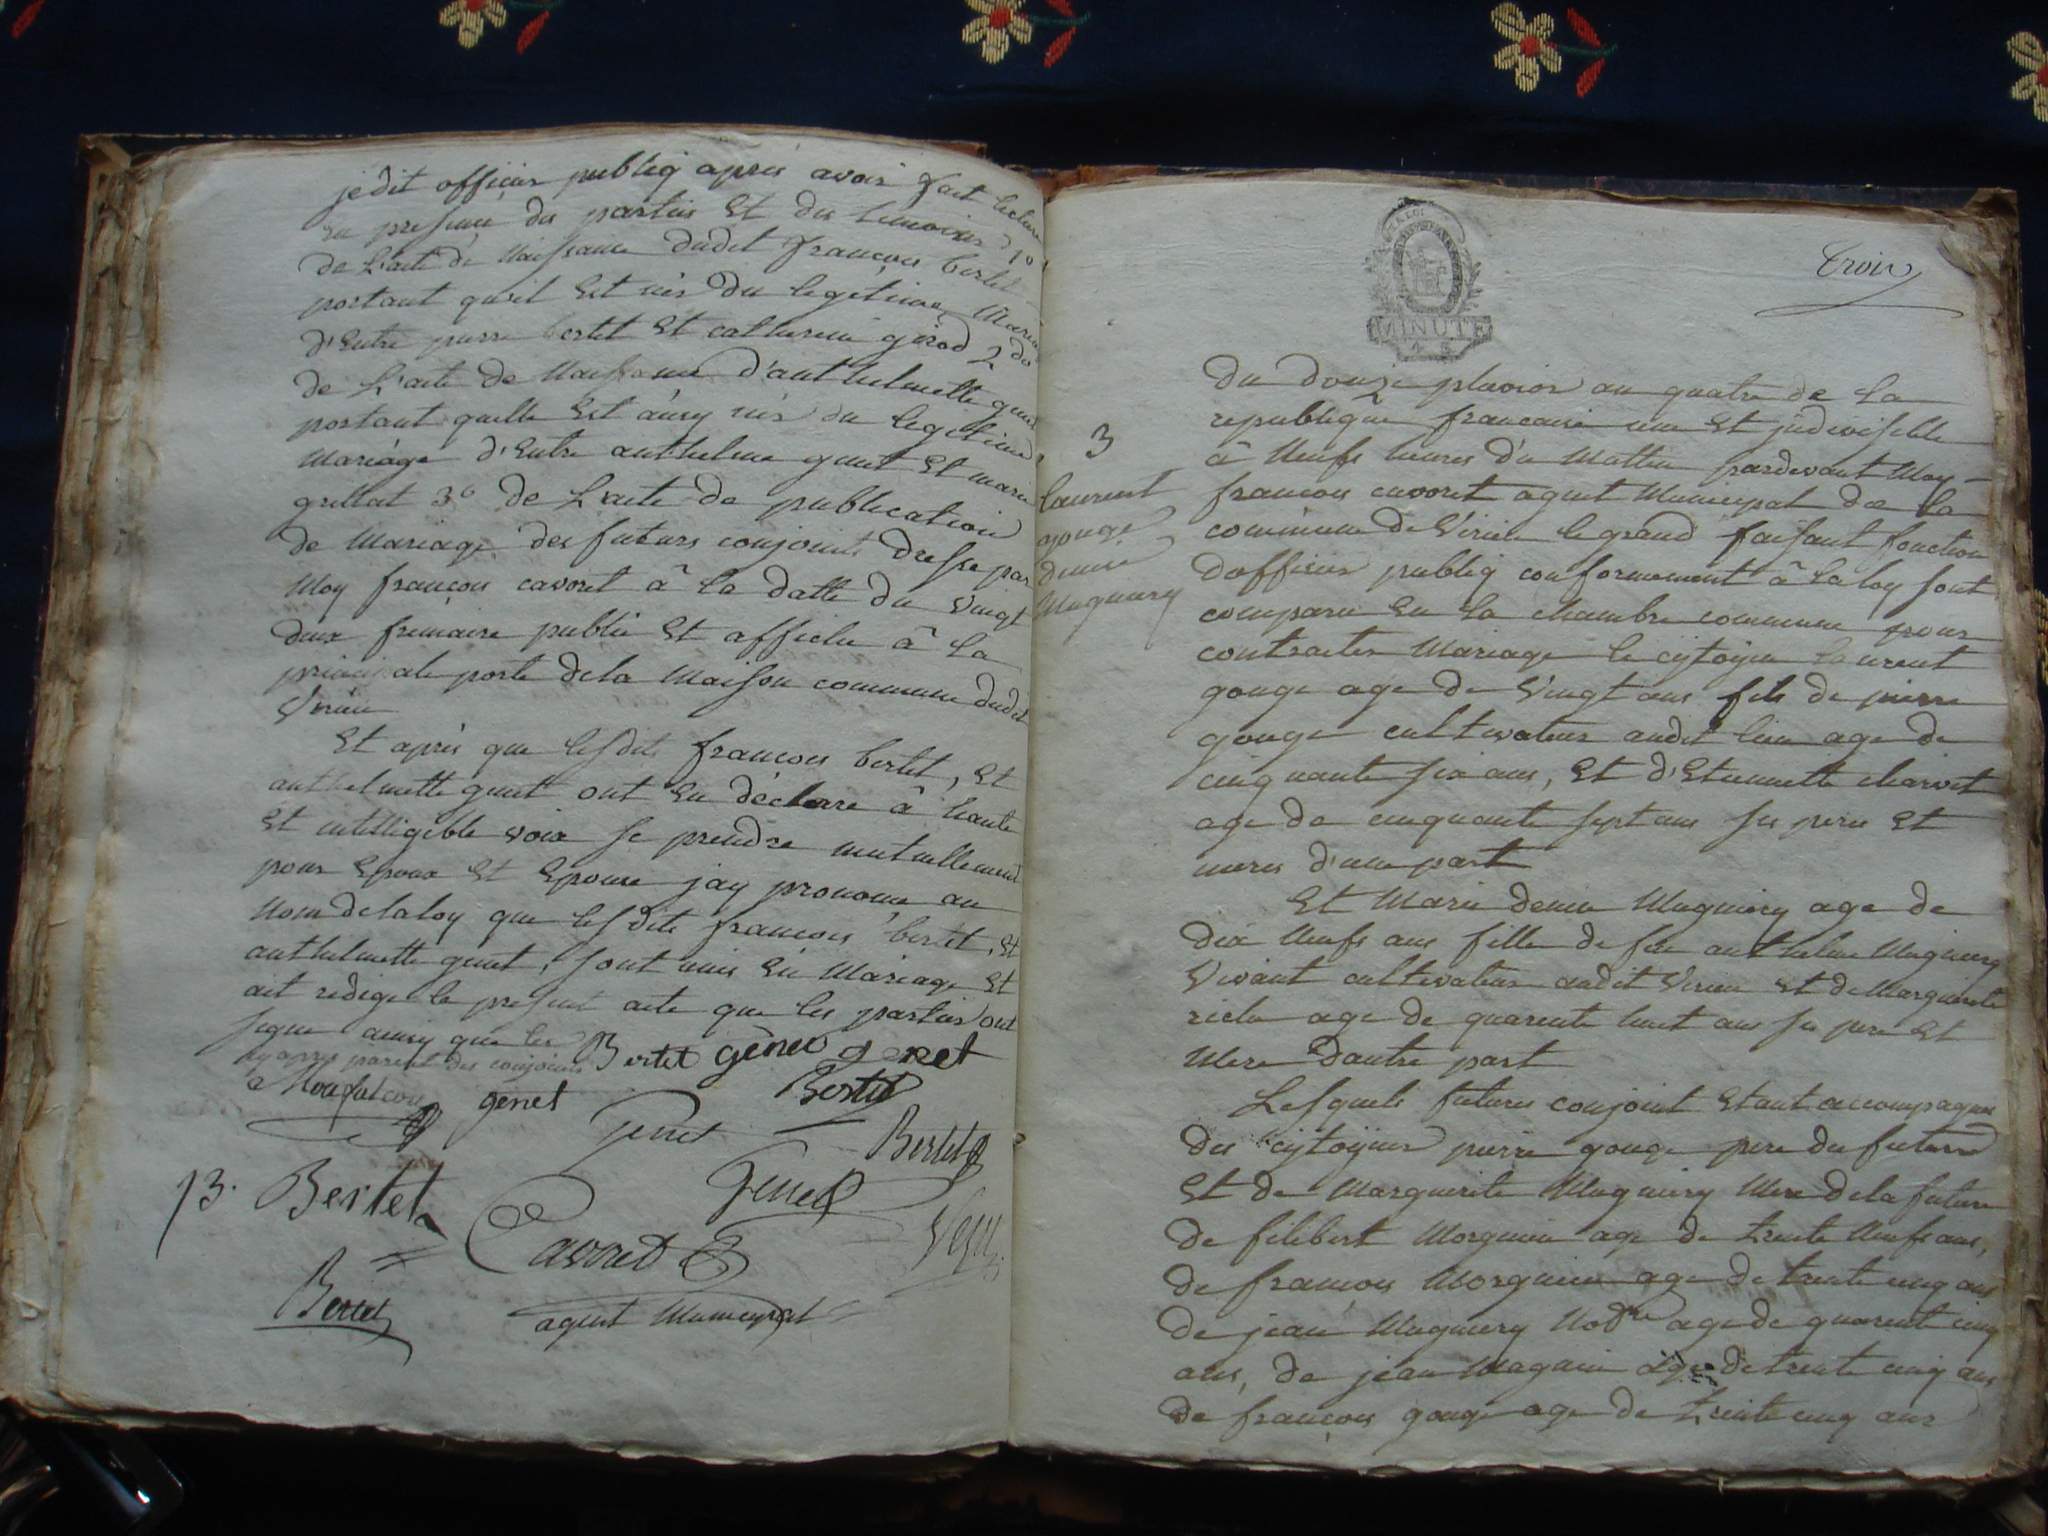 jedit officier publiq apres avoir fait lecture
en presence des parties Et des temoins 1o
de L'acte de Naissance dudit françois bertet
portant qu'il Est nés du legetime Mariage
d'Entre pierre bertet Et catherine girod 2do
de L'acte de Naissance d'anthelmette genet
portant quelle Est aussy nés du legetime
mariage d'Entre anthelme genet Et marie
grillat 3o de L'acte de publication
de Mariage des futurs conjoints dresse par
Moy françois cavoret â la datte du vingt
deux frimaire publie Et affiche â la
principale porte de la Maison commune dudit
Virieu
Et après que lesdits françois bertet, Et
anthelmette genet ont En déclarre â haute
Et intelligible voix se prendre mutuellement
pour Epoux Et Epouse jay prononce au
Nom de la loy que lesdits françois bertet, Et
anthelmette genet, sont unis En Mariage Et
ait redige le present acte que les parties ont
signe aussy que les Bertet génet genet
cy apres parent des conjoints
Monfalcon genet Bertet
genet Bertet
13. Bertet Genet
Cavoret
Bertet agent Municypal
MINUTE
Trois
3
laurent
gouge
denise
Mugniery
Du douze pluvios an quatre de la
republique francaise une Et jndivisible
â Neufs heures du Mattin pardevant Moy
francois cavoret agent Municypal de la
commune de Virieu le grand faisant fonction
dofficier publiq conformement â la loy sont
comparu En la chambre commune pour
contracter Mariage le cytoyen laurent
gouge age de vingt ans fils de pierre
gouge cultivateur audit lieu age de
cinquante six ans, Et d'Etiennette charvet
age de cinquante sept ans ses pere Et
meres d'une part
Et Marie denise Mugniery age de
dix Neufs ans fille de feu anthelme Mugniery
vivant cultivateur audit Virieu Et de Marguerite
age de quarente huit ans ses pere Et
Mere d'autre part
Lesquels futures conjoint Etant accompagnes
des cytoyens pierre gouge pere du future
Et de Marguerite Mugniery Mere de la future
de filibert Morguin age de trente Neufs ans,
de francois Morguin age de trente cinq ans
de jean Mugniery Nodre age de quarente cinq
ans, de jean Magnin age de trente cinq ans
de françois gouge age de trente cinq ans